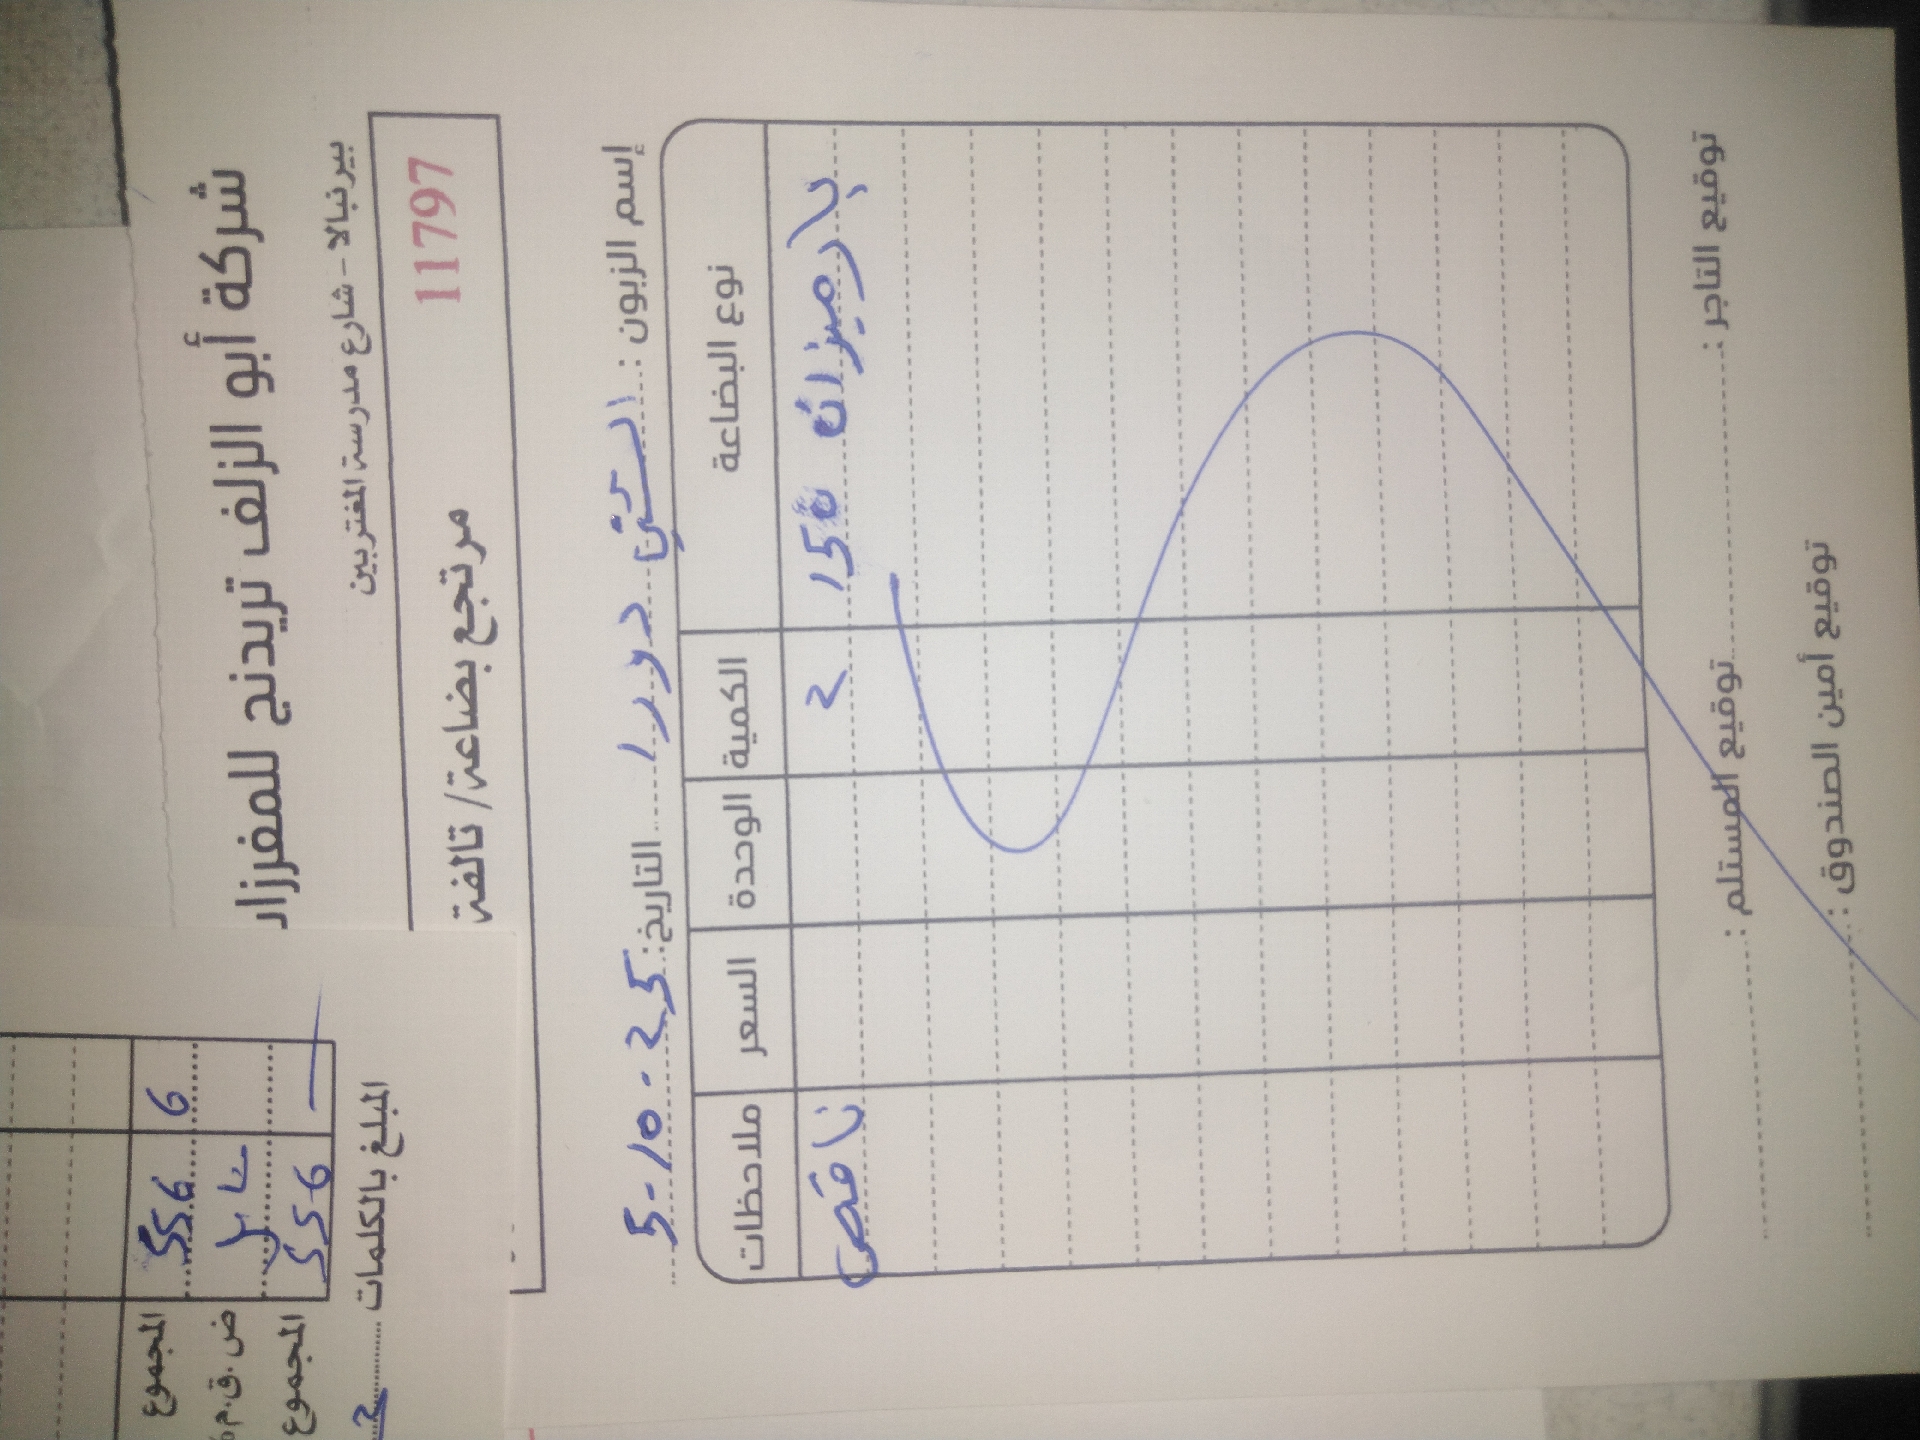 شركة أبو الزلف تريدنج للمفرزا
بيرنبالا - شارع مدرسة المغتربين
11797
مرتجع بضاعة / تالفة
إسم الزبون : دورا التاريخ: 5-10.25
نوع البضاعة الكمية الوحدة السعر ملاحظات
بارميزان 150 2 ناقص
توقيع التاجر : توقيع المستلم :
توقيع أمين الصندوق :
المجموع 556 6
ض.ق.م%
المجموع 556 —
المبلغ بالكلمات